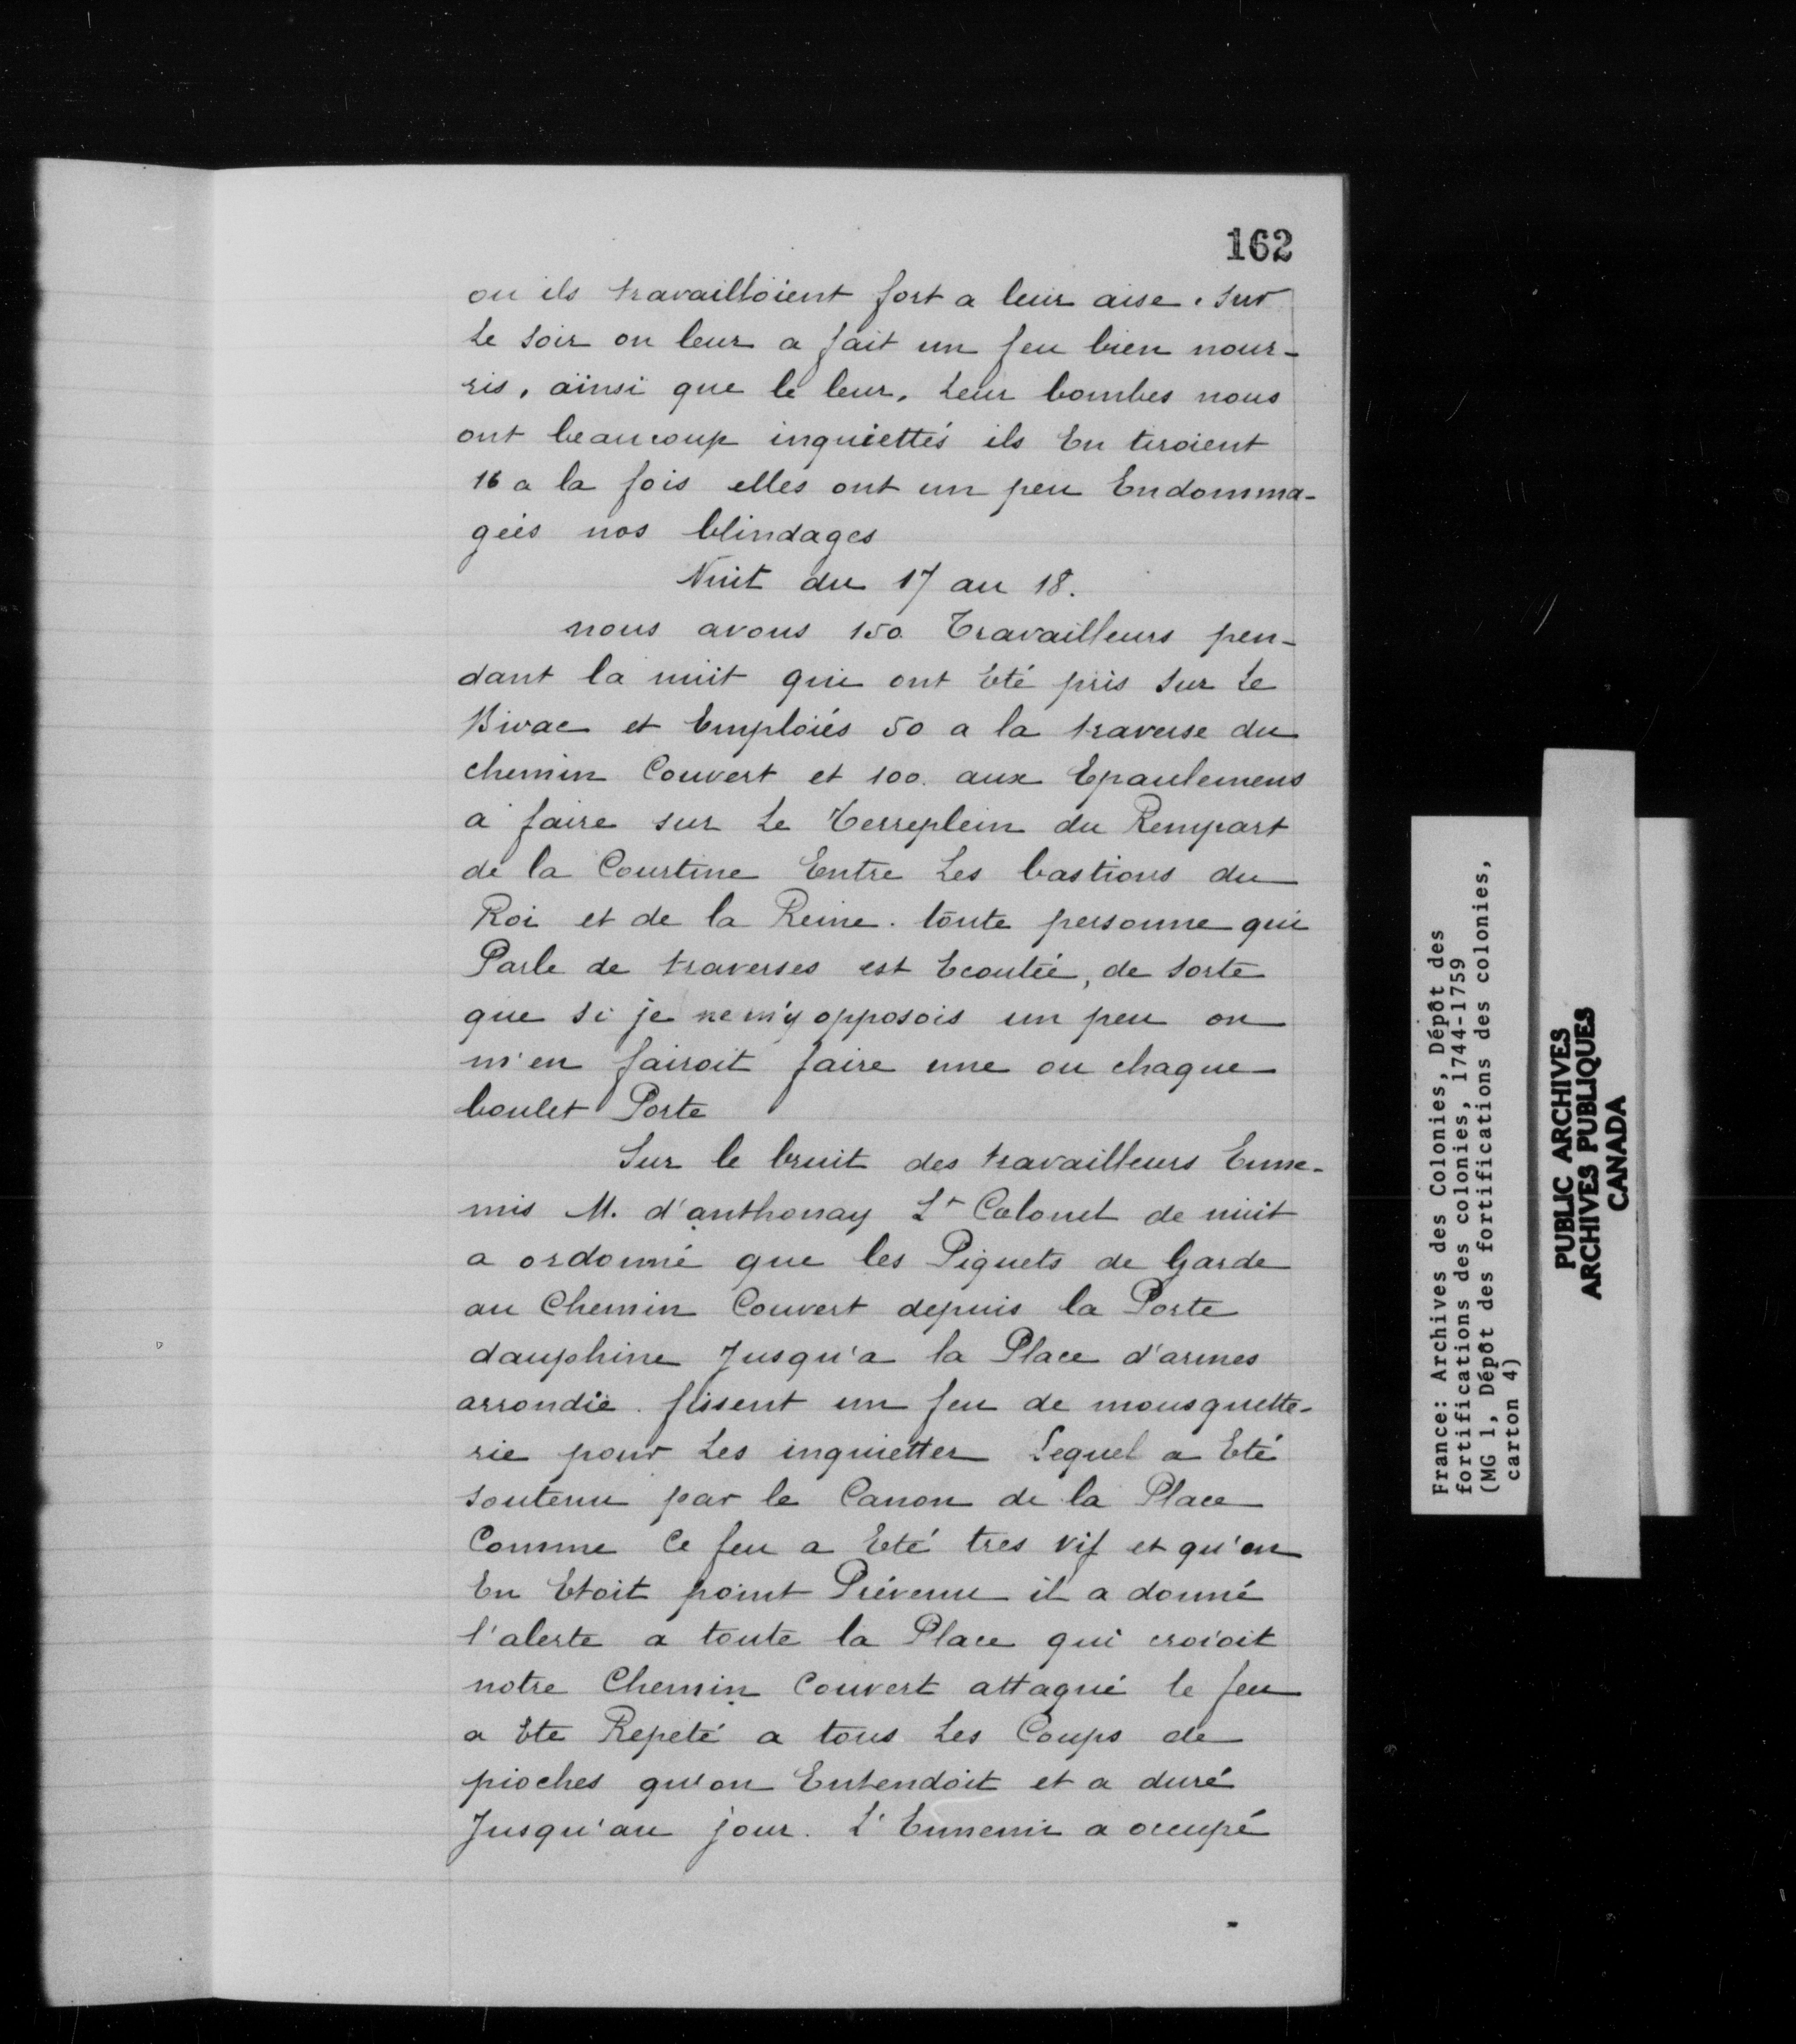 162
ou ils travailloient fort a leur aise. Sur
Le soir on leur a fait un feu bien nour-
ris, ainsi que le leur. Leur bombes nous
ont beaucoup inquiettés ils En tiroient
16 a la fois elles ont un peu Endomma-
gées nos blindages
Nuit du 17 au 18.
nous avons 150 Travailleurs pen-
dant la nuit qui ont Eté pris sur Le
Bivac et Emploiés 50 a la traverse du
chemin Couvert et 100. aux Epaulemens
a faire sur Le Terreplein du Rempart
de la Courtine Entre Les bastions du
Roi et de la Reine. toute personne qui
Parle de traverses est Ecoutée, de sorte
que si je ne m'y opposois un peu on
m'en fairoit faire une ou chaque
boulet Porte
Sur le bruit des travailleurs Enne-
mis M. d'anthonay Lt Colonel de nuit
a ordonné que les Piquets de Garde
au Chemin Couvert depuis la Porte
dauphine Jusqu'a la Place d'armes
arrondie. fissent un feu de mousquette-
rie pour Les inquietter Lequel a Eté
soutenu par le Canon de la Place
Comme Ce feu a Eté tres vif et qu'on
En Etoit point Prévenu il a donné
l'alerte a toute la Place qui croioit
notre Chemin Couvert attaqué le feu
a Ete Repeté a tous Les Coups de
pioches qu'on Entendoit et a duré
Jusqu'au jour. L'Ennemi a occupé
France: Archives des Colonies, Dépôt des
fortifications des colonies, 1744-1759
(MG 1, Dépôt des fortifications des colonies,
carton 4)
PUBLIC ARCHIVES
ARCHIVES PUBLIQUES
CANADA